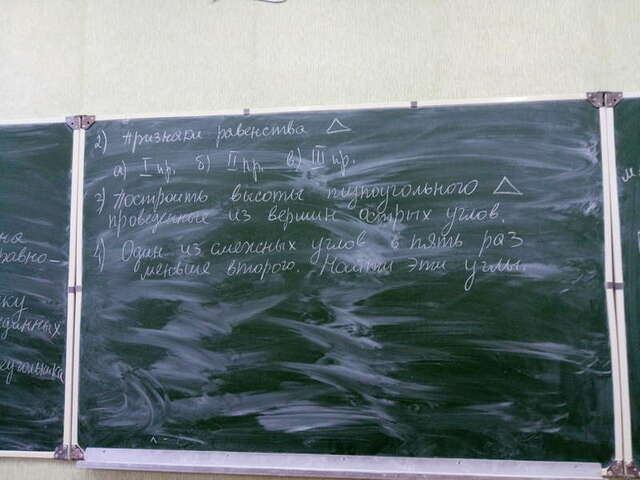 на
равно-
ку
еданных
еугольника
2) Признаки равенства △
а) I пр. б) II пр. в) III пр.
3) Построить высоты тупоугольного △
проведённые из вершин острых углов.
4) Один из смежных углов в пять раз
меньше второго. Найти эти углы.